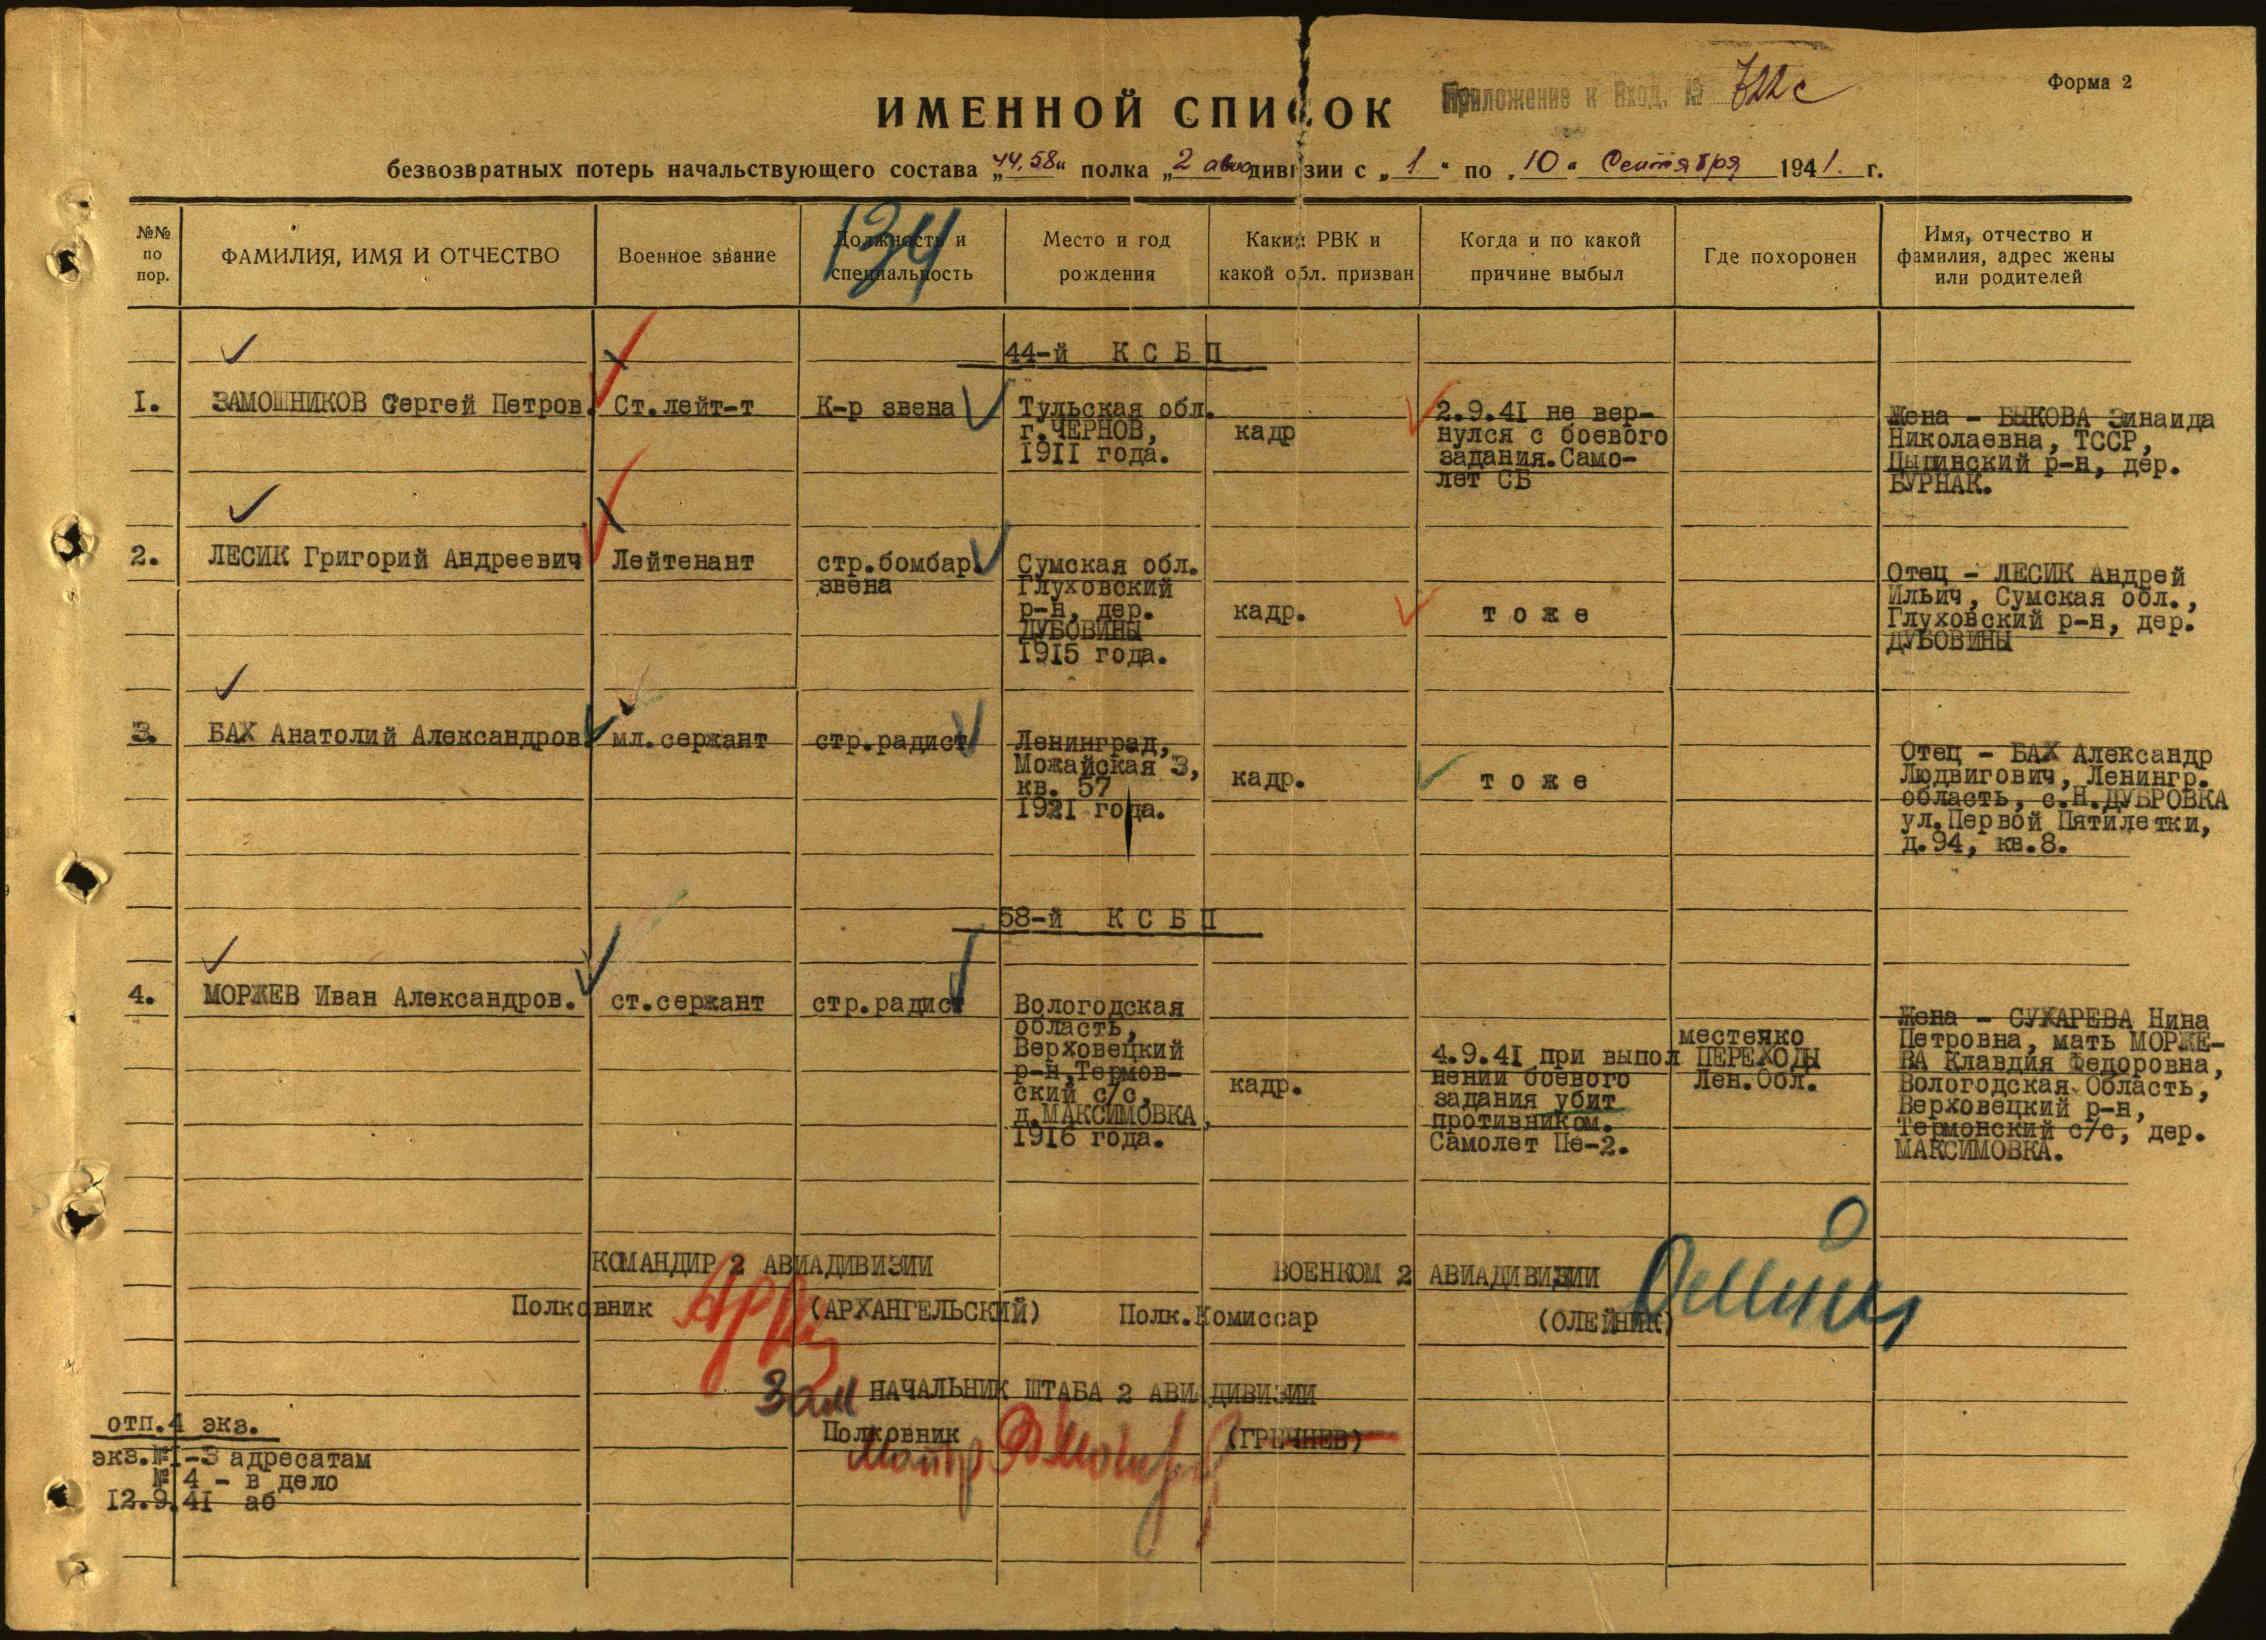 Форма 2
Приложение к Вход. № 722с
ИМЕННОЙ СПИСОК
безвозвратных потерь начальствующего состава „44, 58“ полка „2 авиадивизии с „1“ по „10“ Сентября 1941 г.
№№ по пор.
ФАМИЛИЯ, ИМЯ И ОТЧЕСТВО
Военное звание
Должность и специальность
Место и год рождения
Каким РВК и какой обл. призван
Когда и по какой причине выбыл
Где похоронен
Имя, отчество и фамилия, адрес жены или родителей
134
44-й КСБП
I.
ЗАМОШНИКОВ Сергей Петров.
Ст.лейт-т
К-р звена
Тульская обл.
г.ЧЕРНОВ,
1911 года.
кадр
2.9.41 не вер-
нулся с боевого
задания.Само-
лет СБ
Жена - БЫКОВА Зинаида
Николаевна, ТССР,
Цыпинский р-н, дер.
БУРНАК.
2.
ЛЕСИК Григорий Андреевич
Лейтенант
стр.бомбар.
звена
Сумская обл.
Глуховский
р-н, дер.
ДУБОВИНЫ
1915 года.
кадр.
тоже
Отец - ЛЕСИК Андрей
Ильич, Сумская обл.,
Глуховский р-н, дер.
ДУБОВИНЫ
3.
БАХ Анатолий Александров.
мл.сержант
стр.радист
Ленинград,
Можайская 3,
кв. 57
1921 года.
кадр.
тоже
Отец - БАХ Александр
Людвигович, Ленингр.
область, с.Н.ДУБРОВКА
ул.Первой Пятилетки,
д.94, кв.8.
58-й КСБП
4.
МОРЖЕВ Иван Александров.
ст.сержант
стр.радист
Вологодская
область,
Верховецкий
р-н,Термов-
ский с/с,
д.МАКСИМОВКА,
1916 года.
кадр.
4.9.41 при выпол
нении боевого
задания убит
противником.
Самолет Пе-2.
местечко
ПЕРЕХОДЫ
Лен.Обл.
Жена - СУХАРЕВА Нина
Петровна, мать МОРЖЕ-
ВА Клавдия Федоровна,
Вологодская Область,
Верховецкий р-н,
Термонский с/с, дер.
МАКСИМОВКА.
КОМАНДИР 2 АВИАДИВИЗИИ
Полковник (АРХАНГЕЛЬСКИЙ)
ВОЕНКОМ 2 АВИАДИВИЗИИ
Полк.Комиссар (ОЛЕЙНИК)
Зам НАЧАЛЬНИК ШТАБА 2 АВИАДИВИЗИИ
Полковник (ГРЕЧНЕВ)
Майор
отп.4 экз.
экз.№1-3 адресатам
№ 4 - в дело
12.9.41 аб